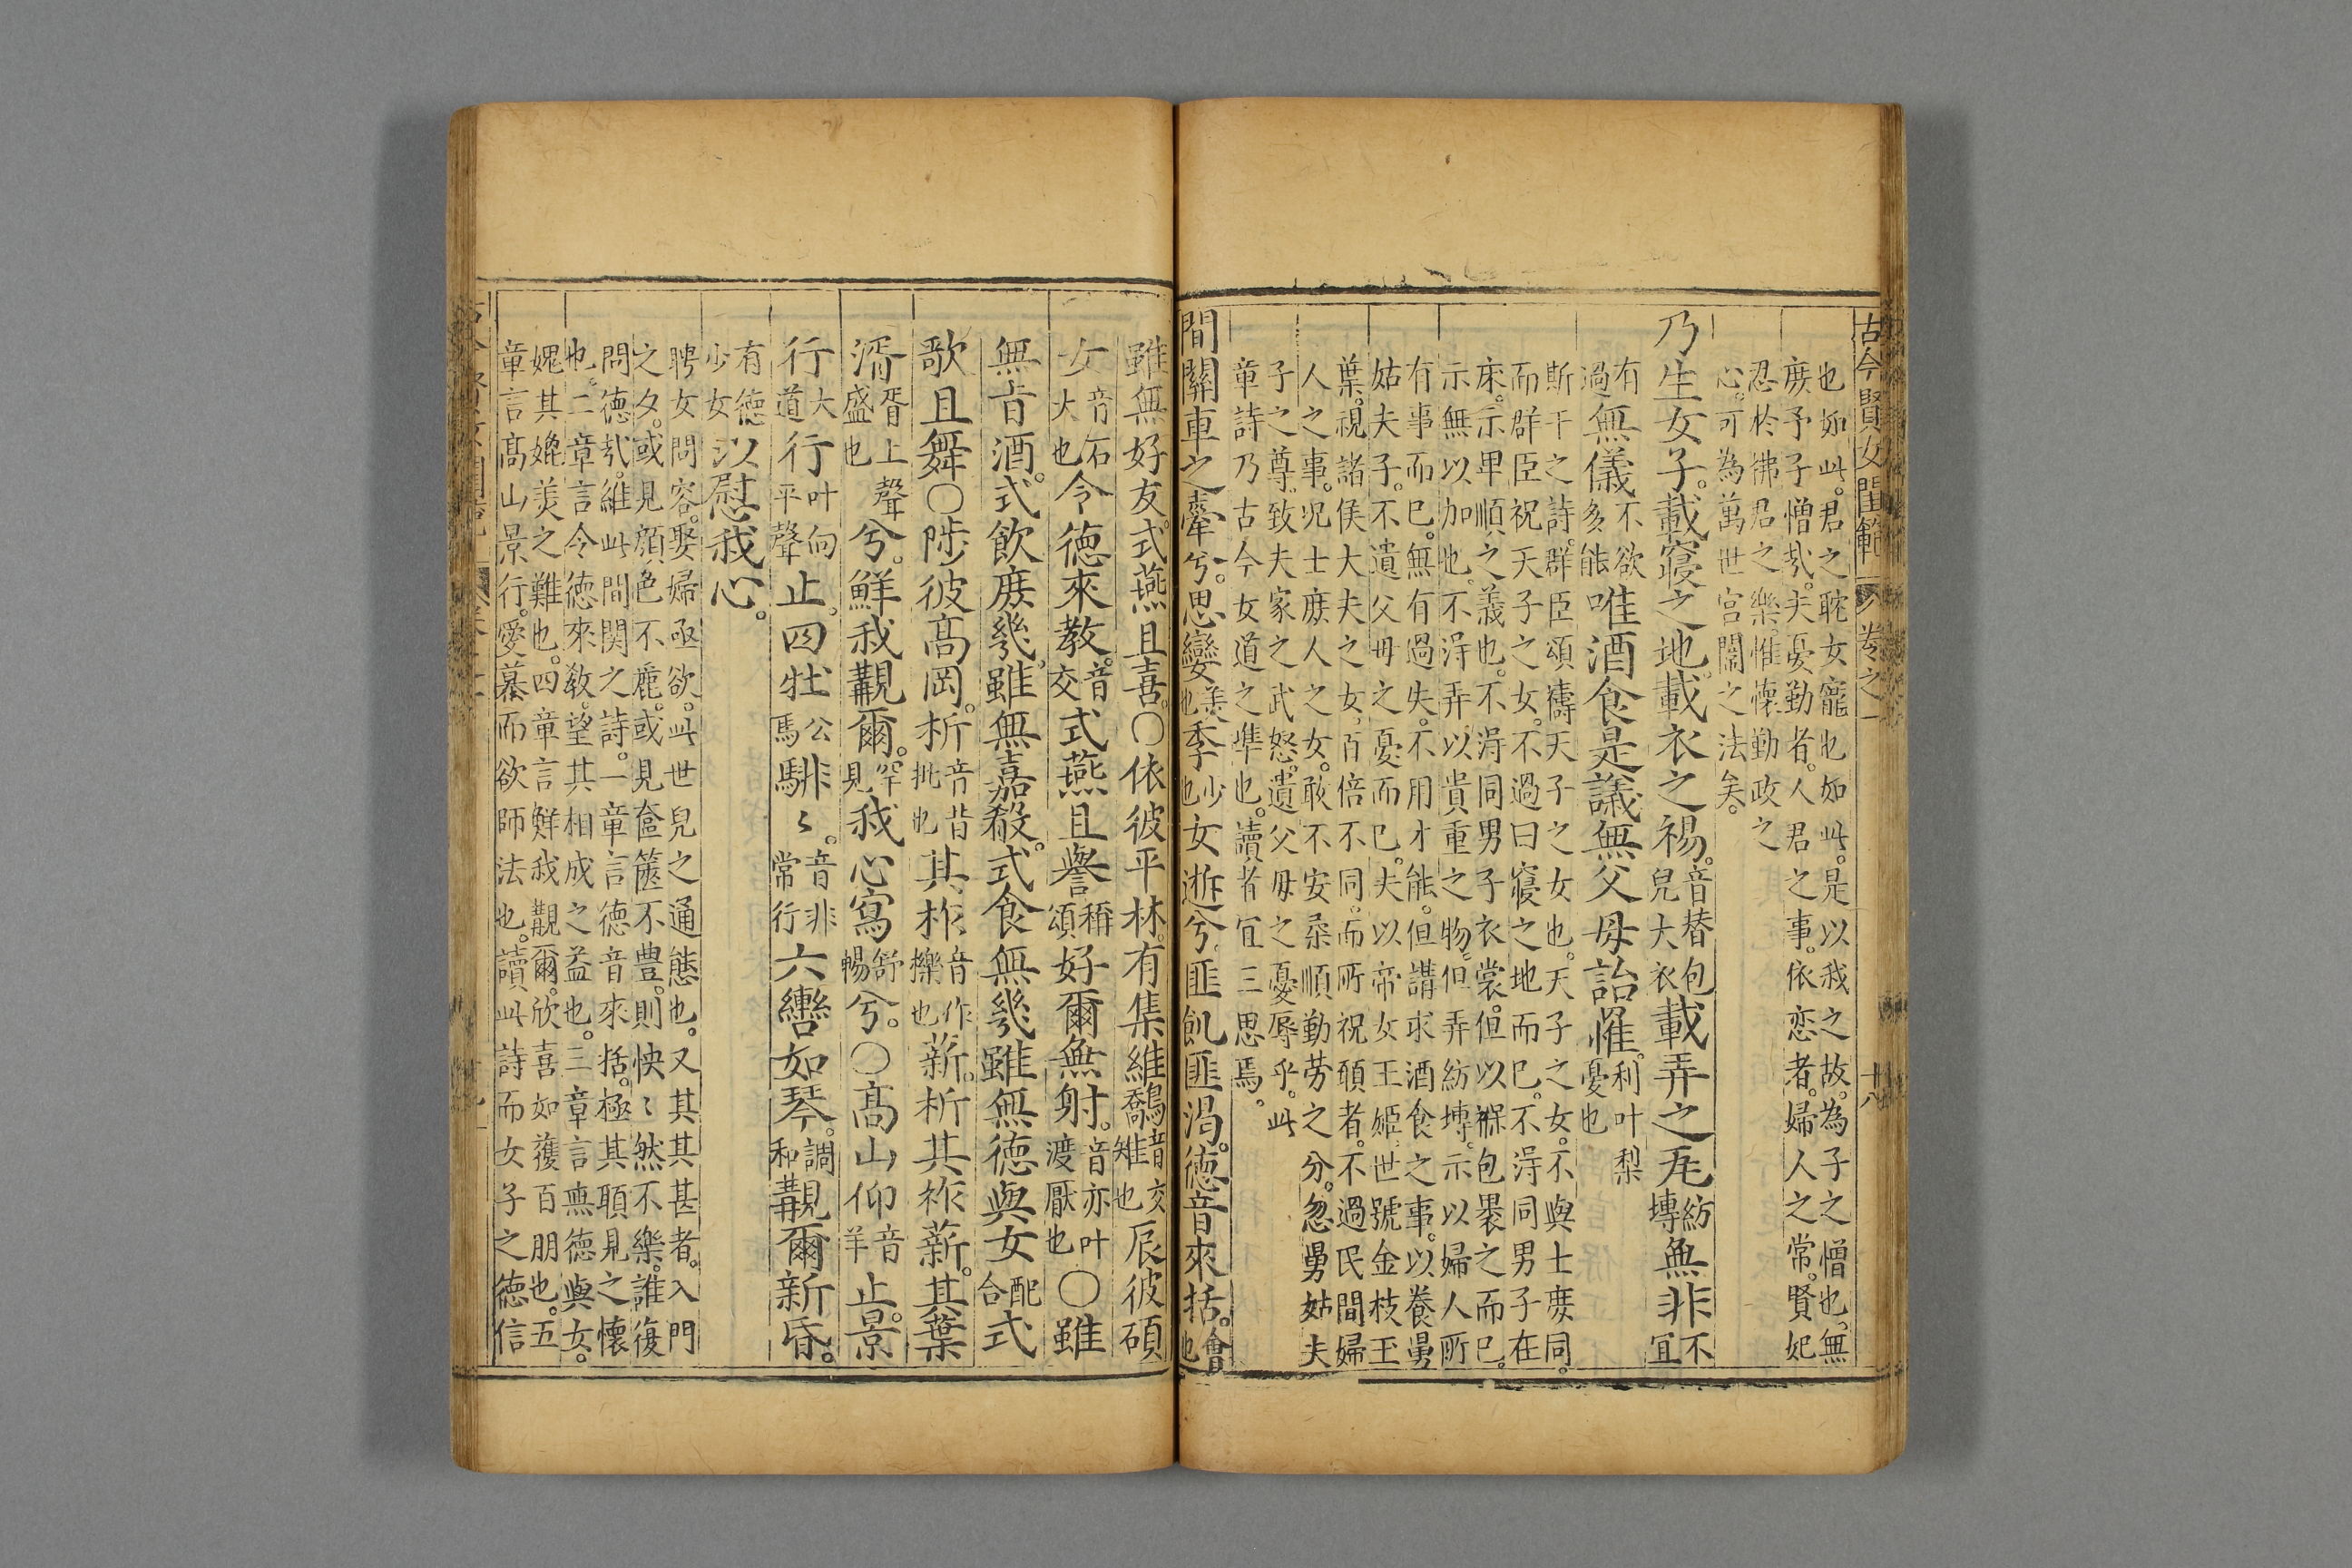 古今賢女閨範 卷之一 十八
也如此。君之耽女寵也如此。是以我之故。為子之憎也。無
庶予子憎哉。夫憂勤者。人君之事。依恋者。婦人之常。賢妃
忍於彿君之樂惟懷勤政之
心。可為萬世宮闈之法矣。
乃生女子。載寢之地。載衣之裼。音替包兒大衣載弄之瓦紡塼無非不宜
有過無儀不欲多能唯酒食是議無父母詒罹。利叶梨憂也
斯干之詩。群臣頌禱天子之女也。天子之女。不與士庶同。
而群臣祝天子之女。不過曰寢之地而已。不淂同男子在
床。示卑順之義也。不淂同男子衣裳。但以褓包褁之而已。
示無以加也。不淂弄以貴重之物。但弄紡塼。示以婦人所
有事而已。無有過失。不用才能。但講求酒食之事。以養舅
姑夫子。不遺父母之憂而已。夫以帝女王姬。世號金枝玉
葉。視諸侯大夫之女。百倍不同。而所祝願者。不過民間婦
人之事。况士庶人之女。敢不安桒順勤劳之分。忽舅姑夫
子之尊。致夫家之武怒。遺父母之憂辱乎。此
章詩乃古今女道之準也。讀者宜三思焉。
間關車之舝兮。思孌美也季少也女逝兮。匪飢匪渴。德音來括。會也
雖無好友。式燕且喜。○依彼平林。有集維鷮音交雉也辰彼碩
女音石大也令德來教。音交式燕且譽稱頌好爾無射。音亦叶渡厭也○雖
無旨酒。式飲庶幾。雖無嘉殽。式食無幾雖無德與女配合式
歌且舞○陟彼高岡。析音昔批也其柞音作櫟也薪。析其柞薪。其葉
湑胥上聲盛也兮。鮮我覯爾。罕見我心寫舒暢兮。○高山仰音羊止。景
行大道行叶向平聲止。四牡公馬騑〻。音非常行六轡如琴。調和覯爾新昏。
有德少女以慰我心。
聘女問容。娶婦亟欲。此世兒之通態也。又其其甚者。入門
之夕。或見顔色不麁。或見奩篋不豊。則怏〻然不樂。誰復
問德哉。維此間関之詩。一章言德音來括。極其願見之懷
也。二章言令德來教。望其相成之益也。三章言無德與女。
媿其媲美之難也。四章言鮮我覯爾。欣喜如獲百朋也。五
章言高山景行。愛慕而欲師法也。讀此詩而女子之德信